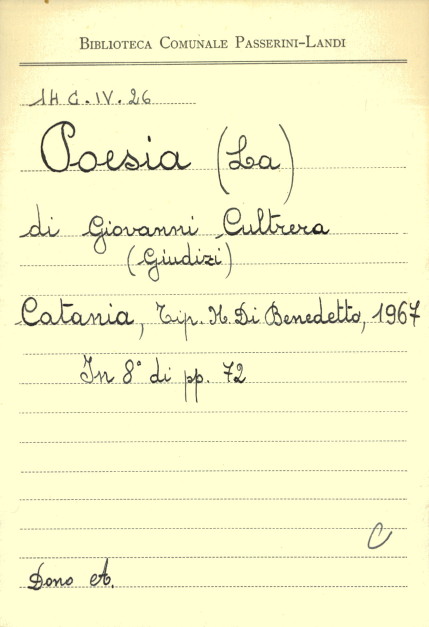 BIBLIOTECA COMUNALE PASSERINI-LANDI
14 C. IV. 26
Poesia (La)
di Giovanni Cultrera
(Giudizi)
Catania, Tip. N. Di Benedetto, 1967
In 8° di pp. 72
C
Dono A.